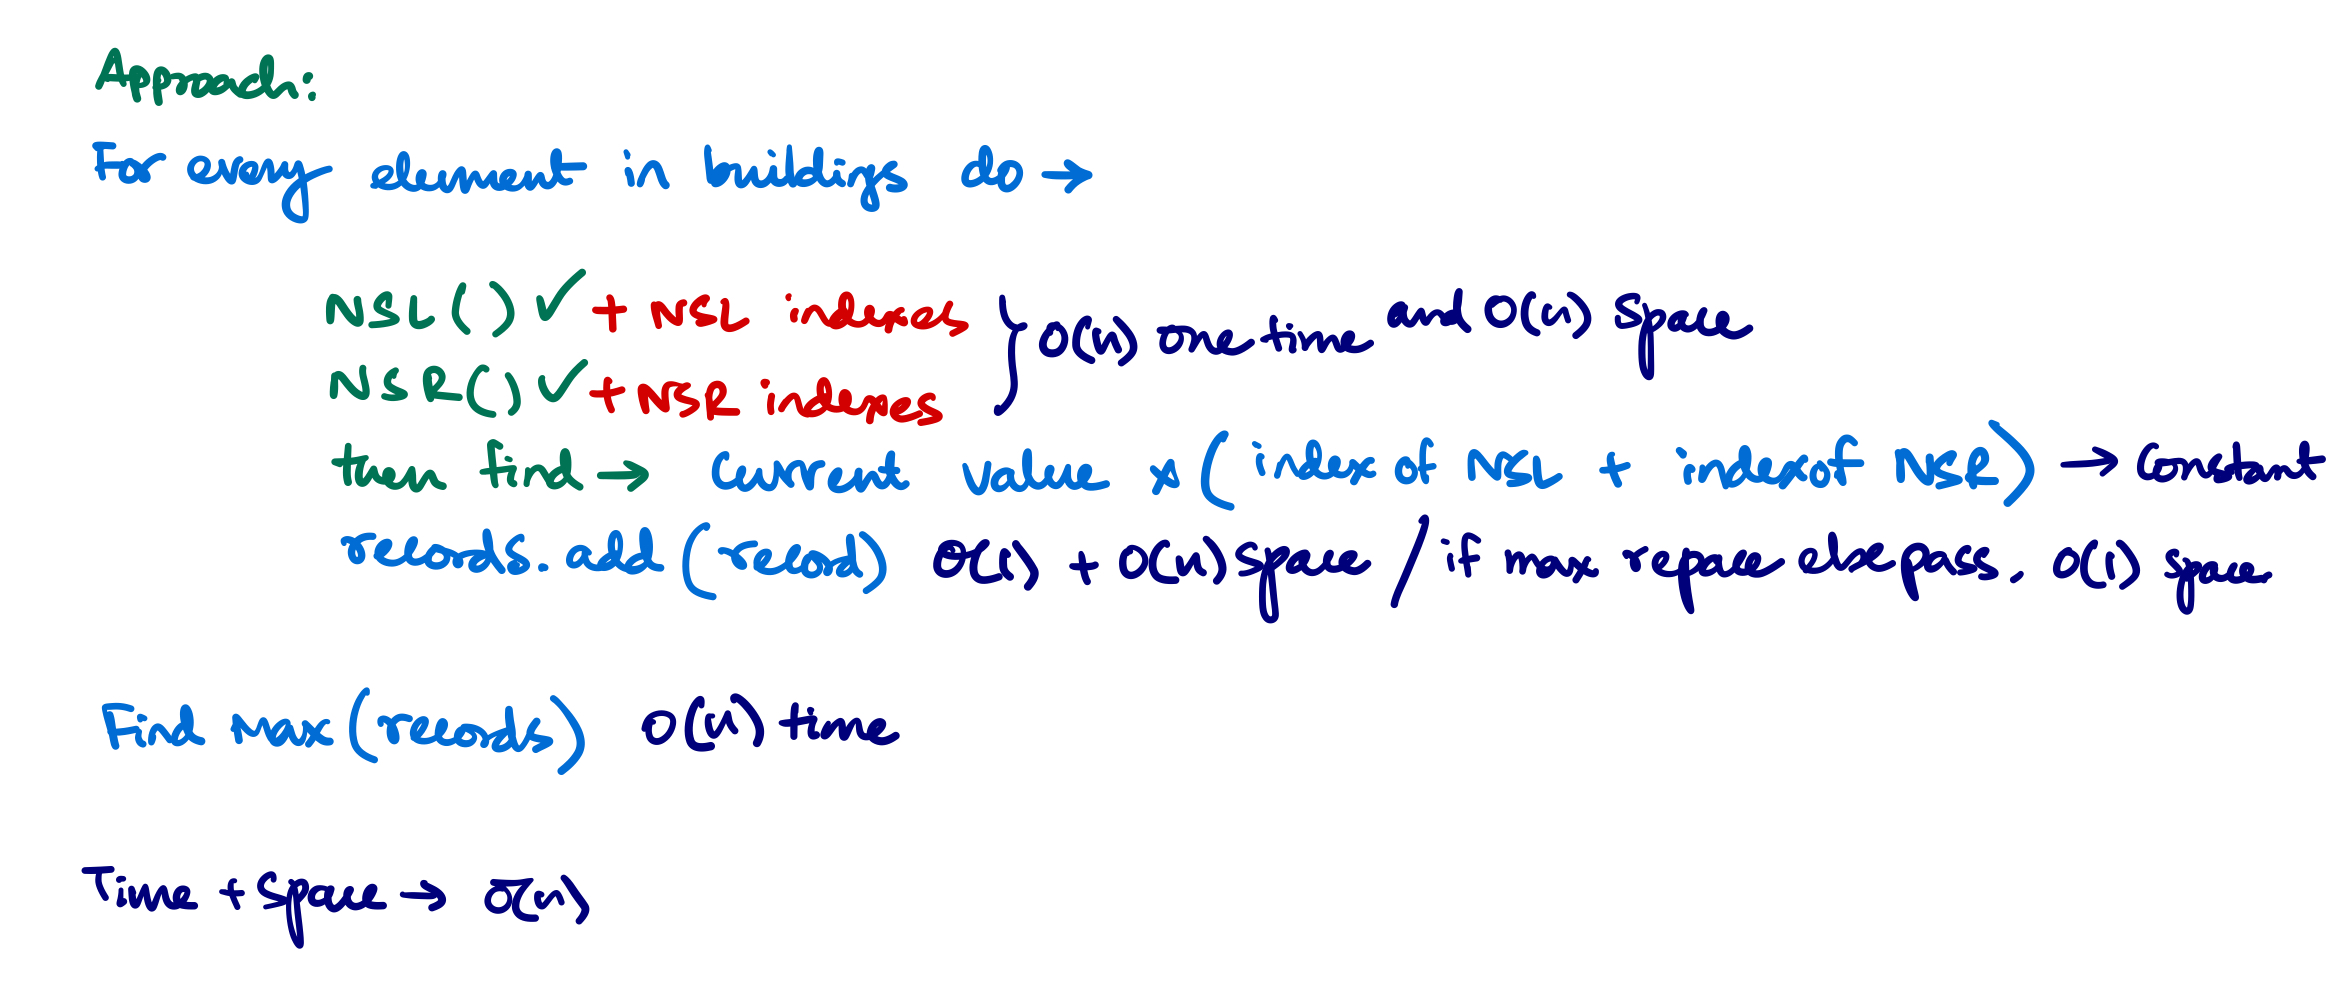 Approach:
For every element in buildings do →
NSL() ✓ + NSL indexes
NSR() ✓ + NSR indexes
} O(n) one time and O(n) space
then find → current value x (index of NSL + index of NSR) → constant
records.add(record) O(1) + O(n) space / if max repace else pass. O(1) space
Find max(records) O(n) time
Time + space → O(n)